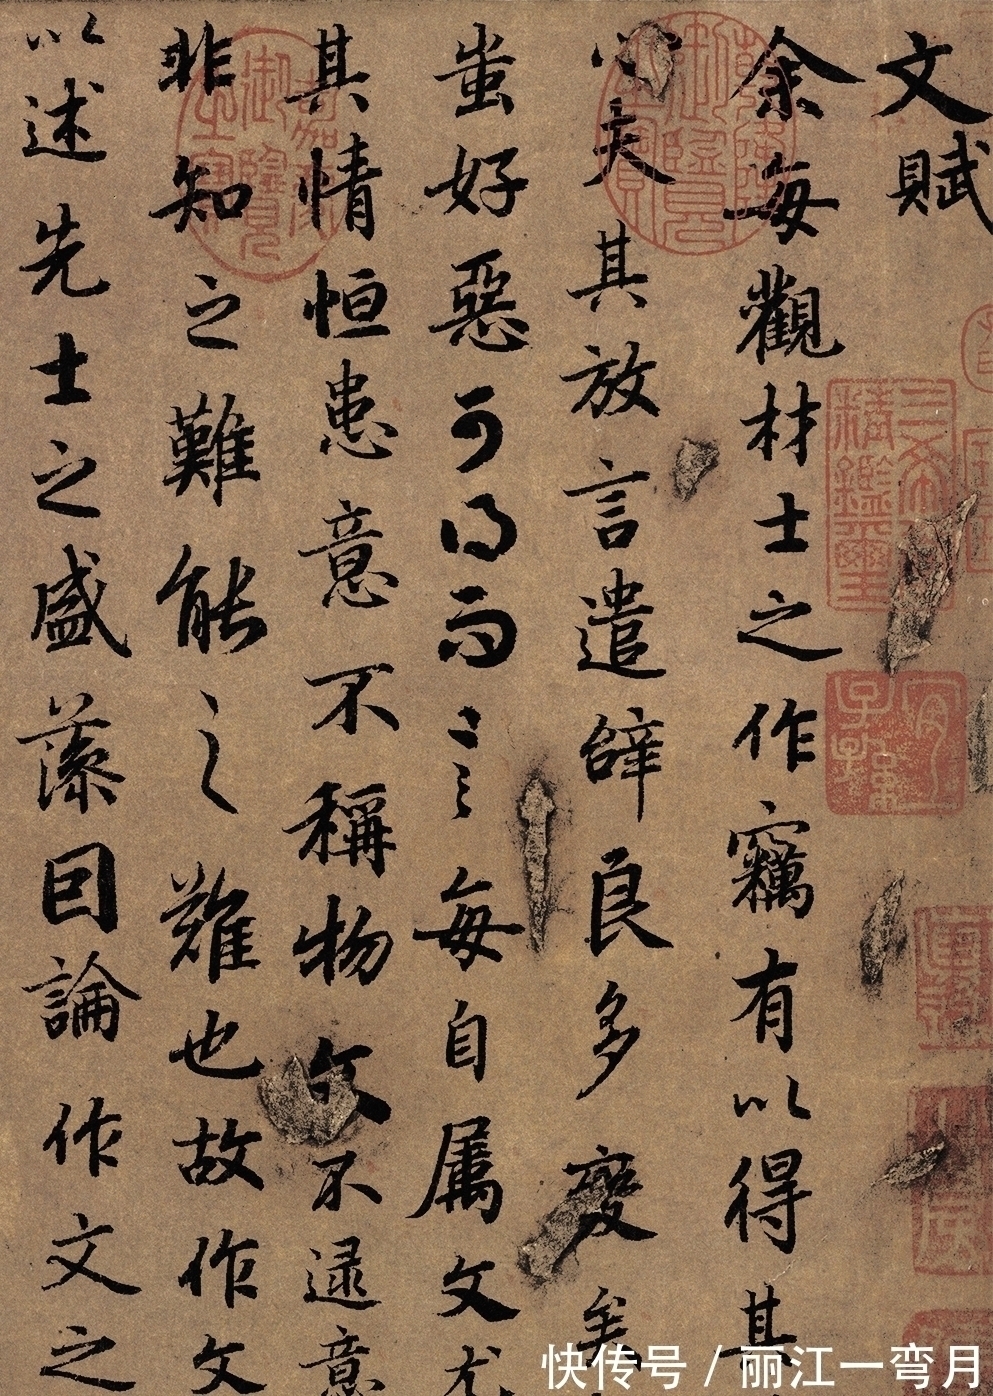 文賦
余每觀材士之作竊有以得其
心夫其放言遣辞良多變矣
蚩好惡可得而言言每自属文尤
其情恒患意不稱物文不逮意
非知之難能之難也故作文
以述先士之盛藻因論作文之
快传号 / 丽江一弯月